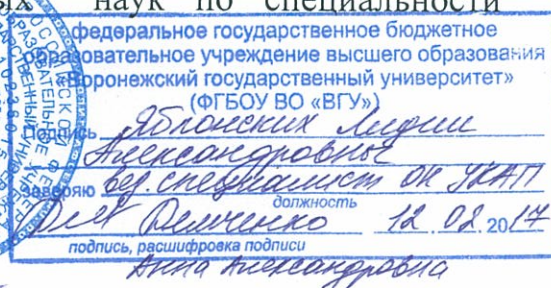 наук по специальности
федеральное государственное бюджетное
образовательное учреждение высшего образования
«Воронежский государственный университет»
(ФГБОУ ВО «ВГУ»)
Подпись Яблонских Лидии
Александровны
заверяю вед. специалист ОК УКАП
должность
Демченко 12.02.2017
подпись, расшифровка подписи
Анна Александровна